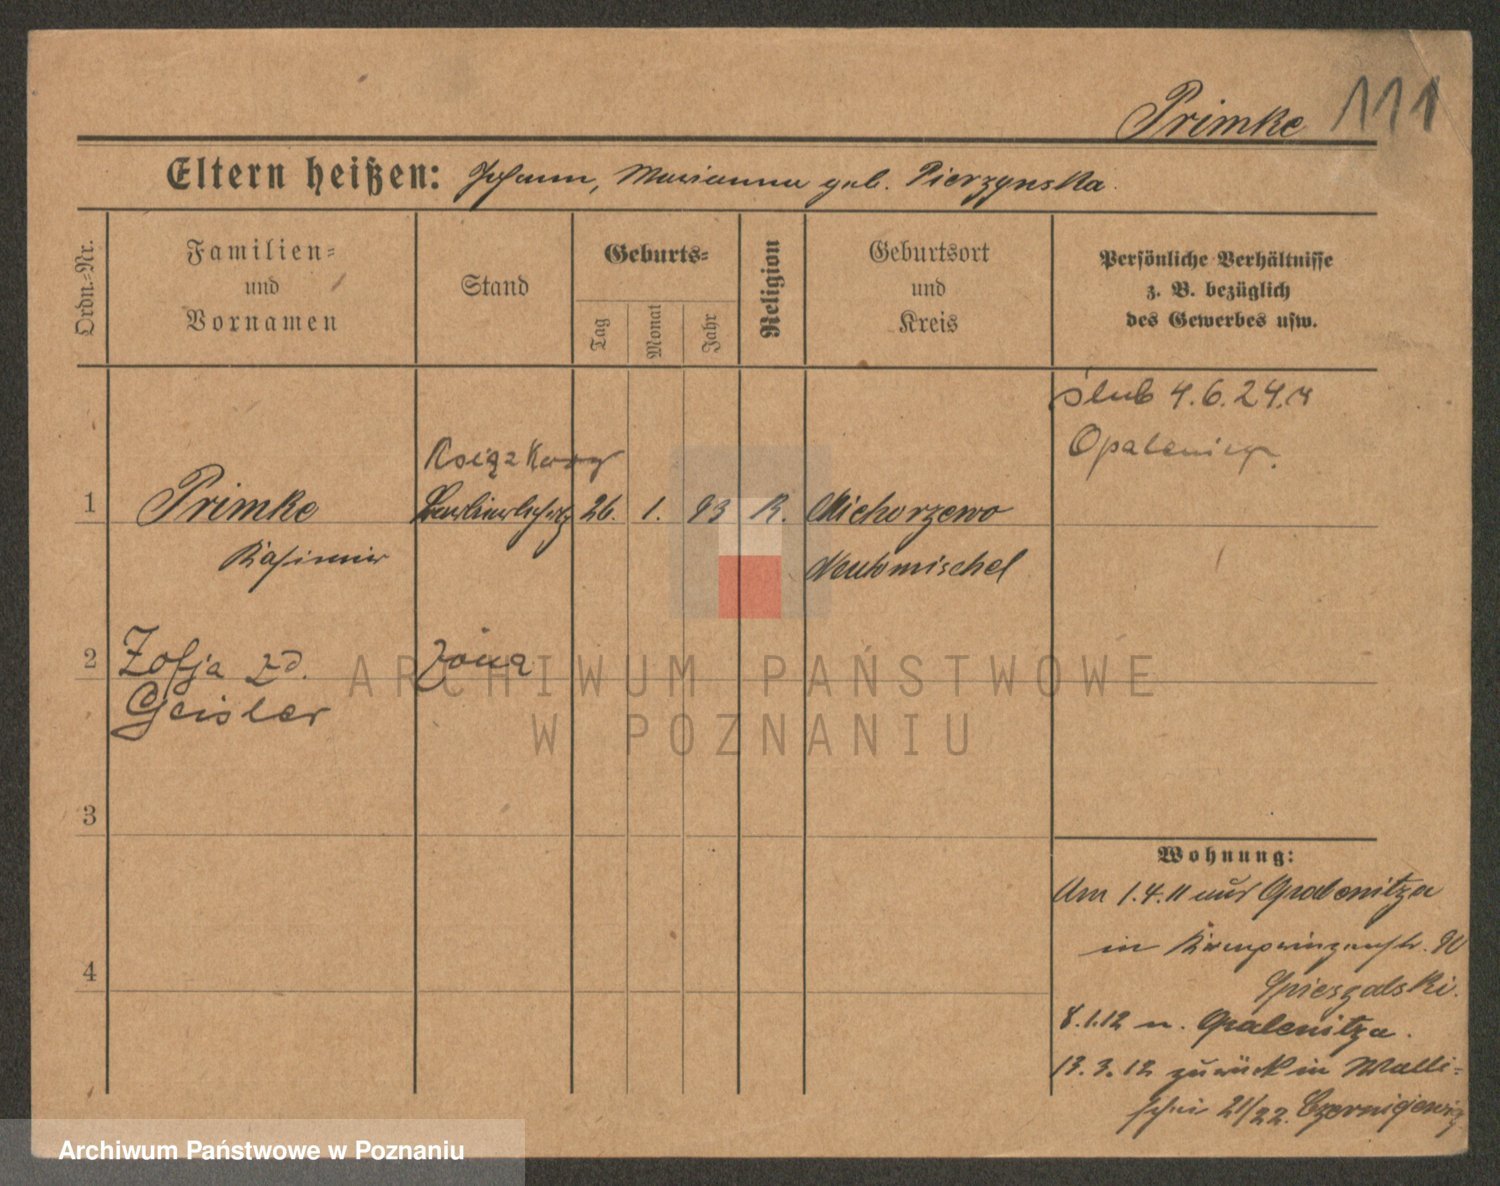 Primke 111
Eltern heißen: Johann, Marianna geb. Pierzynska.
Ordn.-Nr.
Familien-
und
Vornamen
Stand
Geburts-
Tag
Monat
Jahr
Religion
Geburtsort
und
Kreis
Persönliche Verhältnisse
z. B. bezüglich
des Gewerbes usw.
ślub 4.6.24. r
Opalenica.
1 Primke 26. 1. 93 R. Michorzewo
Kasimir Neutomischel
2 Zofja zd. żona
Geisler
3
4
Wohnung:
Am 1.4.11 aus Opalenitza
in Kronprinzenstr. 90
Spieszalski.
8.1.12 n. Opalenitza.
13.3.12 zurück in Walli-
schei 21/22.
ARCHIWUM PAŃSTWOWE
W POZNANIU
Archiwum Państwowe w Poznaniu